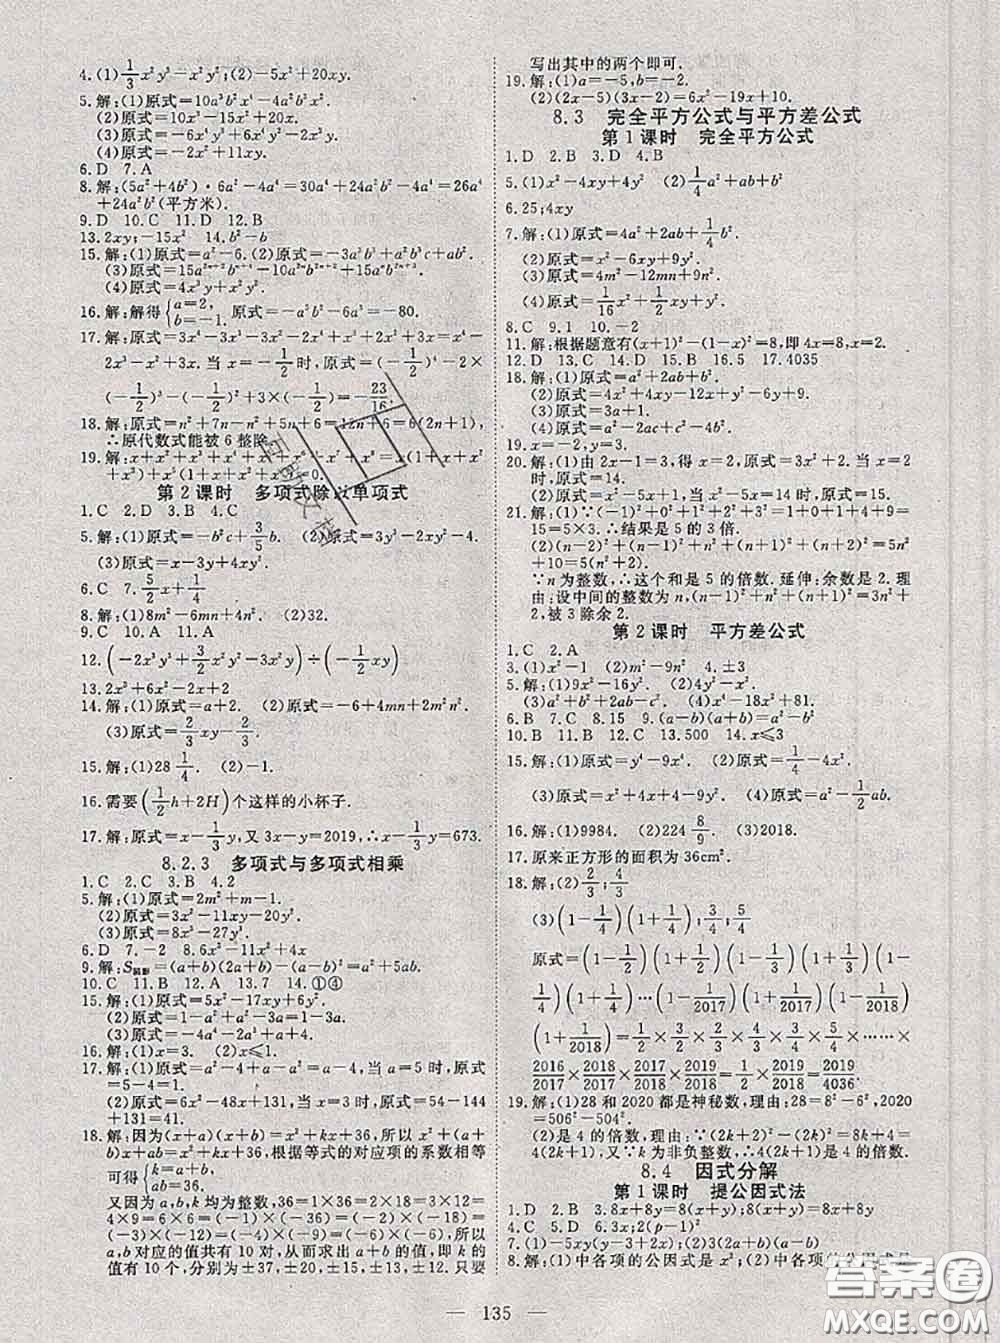 4.(1)1/3x²y³-x²y²;(2)-5x²+20xy.
5.解:(1)原式=10a³b²-8a²b²x².
(2)原式=10x³-15x².
(3)原式=6x⁴y
(4)原式=-x²+11xy.
6.D 7.A
8.解:(5a²+4b²)·6a²-4a⁴=30a⁴+24a²b²-4a⁴=26a⁴
+24a²b²(平方米).
9.D 10.C 11.D 12.B
13.2xy;-15x² 14.b²-b
17.解:原式=3x⁴-x³-3x²-2x⁴+x³+3x-x⁴=x⁴-
2x²+3x.当x=-1/2时,原式=(-1/2)⁴-2×
(-1/2)²+3×(-1/2)=-23/16.
18.解:原式=n²+7n-n²-5n+12=12n+6=6(2n+1),
∴原代数式能被6整除.
第2课时 多项式除以单项式
1.C 2.D 3.B 4.C
5.解:(1)原式=-b²c+3/5b. (2)原式=3y³-2xy²-4.
(3)原式=x-3y
6.C 7.5/2x+1/4
8.解:(1)8m²-6mn+4n². (2)32.
9.C 10.A 11.A
12.(-2x³y³+3/2x²y²-3x²y)÷(-1/2xy)
13.2x³+6x²-2x+2
14.解:(1)原式=a+2. (2)原式=-6+4mn+2m²n².
(3)原式=2/3xy-2/3.
15.解:(1)28 1/4. (2)-1.
16.需要(1/2h+2H)个这样的小杯子.
17.解:原式=x-1/3y,又3x-y=2019,∴x-1/3y=673.
8.2.3 多项式与多项式相乘
1.C 2.C 3.B 4.2
5.解:(1)原式=2m²+m-1.
(2)原式=3x²-11xy-20y².
(3)原式=8x³-27y³.
6.D 7.-2 8.6x³-11x²+4x
9.解:S阴影=(a+b)(2a+b)-(a-b)(2a-b)... =a²+5ab.
10.C 11.B 12.A 13.7 14.①④
15.解:(1)原式=5x²-17xy+6y².
(2)原式=1-a²+a²-a³=1-a³.
(3)原式=-a⁴-2a³+a+4.
16.解:(1)x=3. (2)x≤1.
17.解:(1)原式=a²-4+a-a²=a-4,当a=5时,原式
=5-4=1.
(2)原式=6x²-48x+131,当x=3时,原式=54-144
+131=41.
18.解:因为(x+a)(x+b)=x²+kx+36,所以x²+(a+
b)x+ab=x²+kx+36,根据等式的对应项的系数相等
可得{k=a+b, ab=36.
又因为a,b,k均为整数,36=1×36=2×18=3×12=
4×9=6×6=(-1)×(-36)=(-2)×(-18)=
(-3)×(-12)=(-4)×(-9)=(-6)×(-6),所以
a,b对应的值共有10对,从而求出a+b的值,即k的
值有10个,分别为±37,±20,±15,±13,±12.只要
写出其中的两个即可.
19.解:(1)a=-5,b=-2.
(2)(2x-5)(3x-2)=6x²-19x+10.
8.3 完全平方公式与平方差公式
第1课时 完全平方公式
1.D 2.B 3.D 4.B
5.(1)x²-4xy+4y² (2)1/4a²+ab+b²
6.25;4xy
7.解:(1)原式=4a²+2ab+1/4b².
(2)原式=x²-6xy+9y².
(3)原式=4m²-12mn+9n².
(4)原式=1/16x²+1/2xy+y².
8.C 9.1 10.-2
11.解:根据题意有(x+1)²-(1-x)²=8,即4x=8,x=2.
12.D 13.C 14.D 15.B 16.5 17.4035
18.解:(1)原式=a²+2ab+b².
(2)原式=4x²+4xz-12xy+z²-6yz+9y².
(3)原式=3a+1.
19.x=3,
20.解:(1)由2x-1=3,得x=2,原式=3x²+2.当x=2
时,原式=14.
(2)原式=x²-5,当x=4时,原式=11.
21.解:(1)∵(-1)²+0²+1²+2²+3²=1+0+1+4+9=
15=5×3.∴结果是5的3倍.
(2)(n-2)²+(n-1)²+n²+(n+1)²+(n+2)²=5n²
+10=5(n²+2).
∵n为整数,∴这个和是5的倍数.延伸:余数是2.理
由:设中间的整数为n,(n-1)²+n²+(n+1)²=3n²+
2,被3除余2.
第2课时 平方差公式
1.C 2.A
3.(1)x²-1 (2)m²-9n² 4.±3
5.解:(1)9x²-16y². (2)4y²-x².
(3)a²+b²+2ab-c². (4)x⁴-18x²+81.
6.B 7.C 8.15 9.(a-b)(a+b)=a²-b²
10.B 11.B 12.100 13.500 14.x≤3
15.解:(1)原式=y⁴-9x⁴. (2)原式=1/4-4x².
(3)原式=5x²-9xy+4y². (4)原式=a²-1/2ab.
16.解:(1)9984. (2)224 8/9. (3)2018.
17.原来正方形的面积为36cm².
18.解:(2)2/3;4/3
(3)(1-1/4)(1+1/4);3/4;5/4
原式=(1-1/2)(1+1/2)(1-1/3)(1+1/3)(1-
1/4)(1+1/4)…(1-1/2017)(1+1/2017)(1-1/2018)
(1+1/2018)=1/2×3/2×2/3×4/3×3/4×5/4×…×
2016/2017×2018/2017×2017/2018×2019/2018=1/2×2019/2018=2019/4036.
19.解:(1)28和2020都是神秘数,理由:28=8²-6²,2020
=506²-504².
(2)是4的倍数,理由:∵(2k+2)²-(2k)²=8k+4=
4(2k+1),又∵k为非负整数,∴4(2k+1)是4的倍数.
8.4 因式分解
第1课时 提公因式法
1.D 2.B 3.8x+8y=8(x+y);8(x+y)=8x+8y
4.C 5.D 6.3x;2(p-1)²
7.(1)-5xy(y-3);(2)3(2a+b)(a-b)
8.解:(1)中各项的公因式是x²;(2)中各项的公因式是
— 135 —
答案圈
MXQE.COM